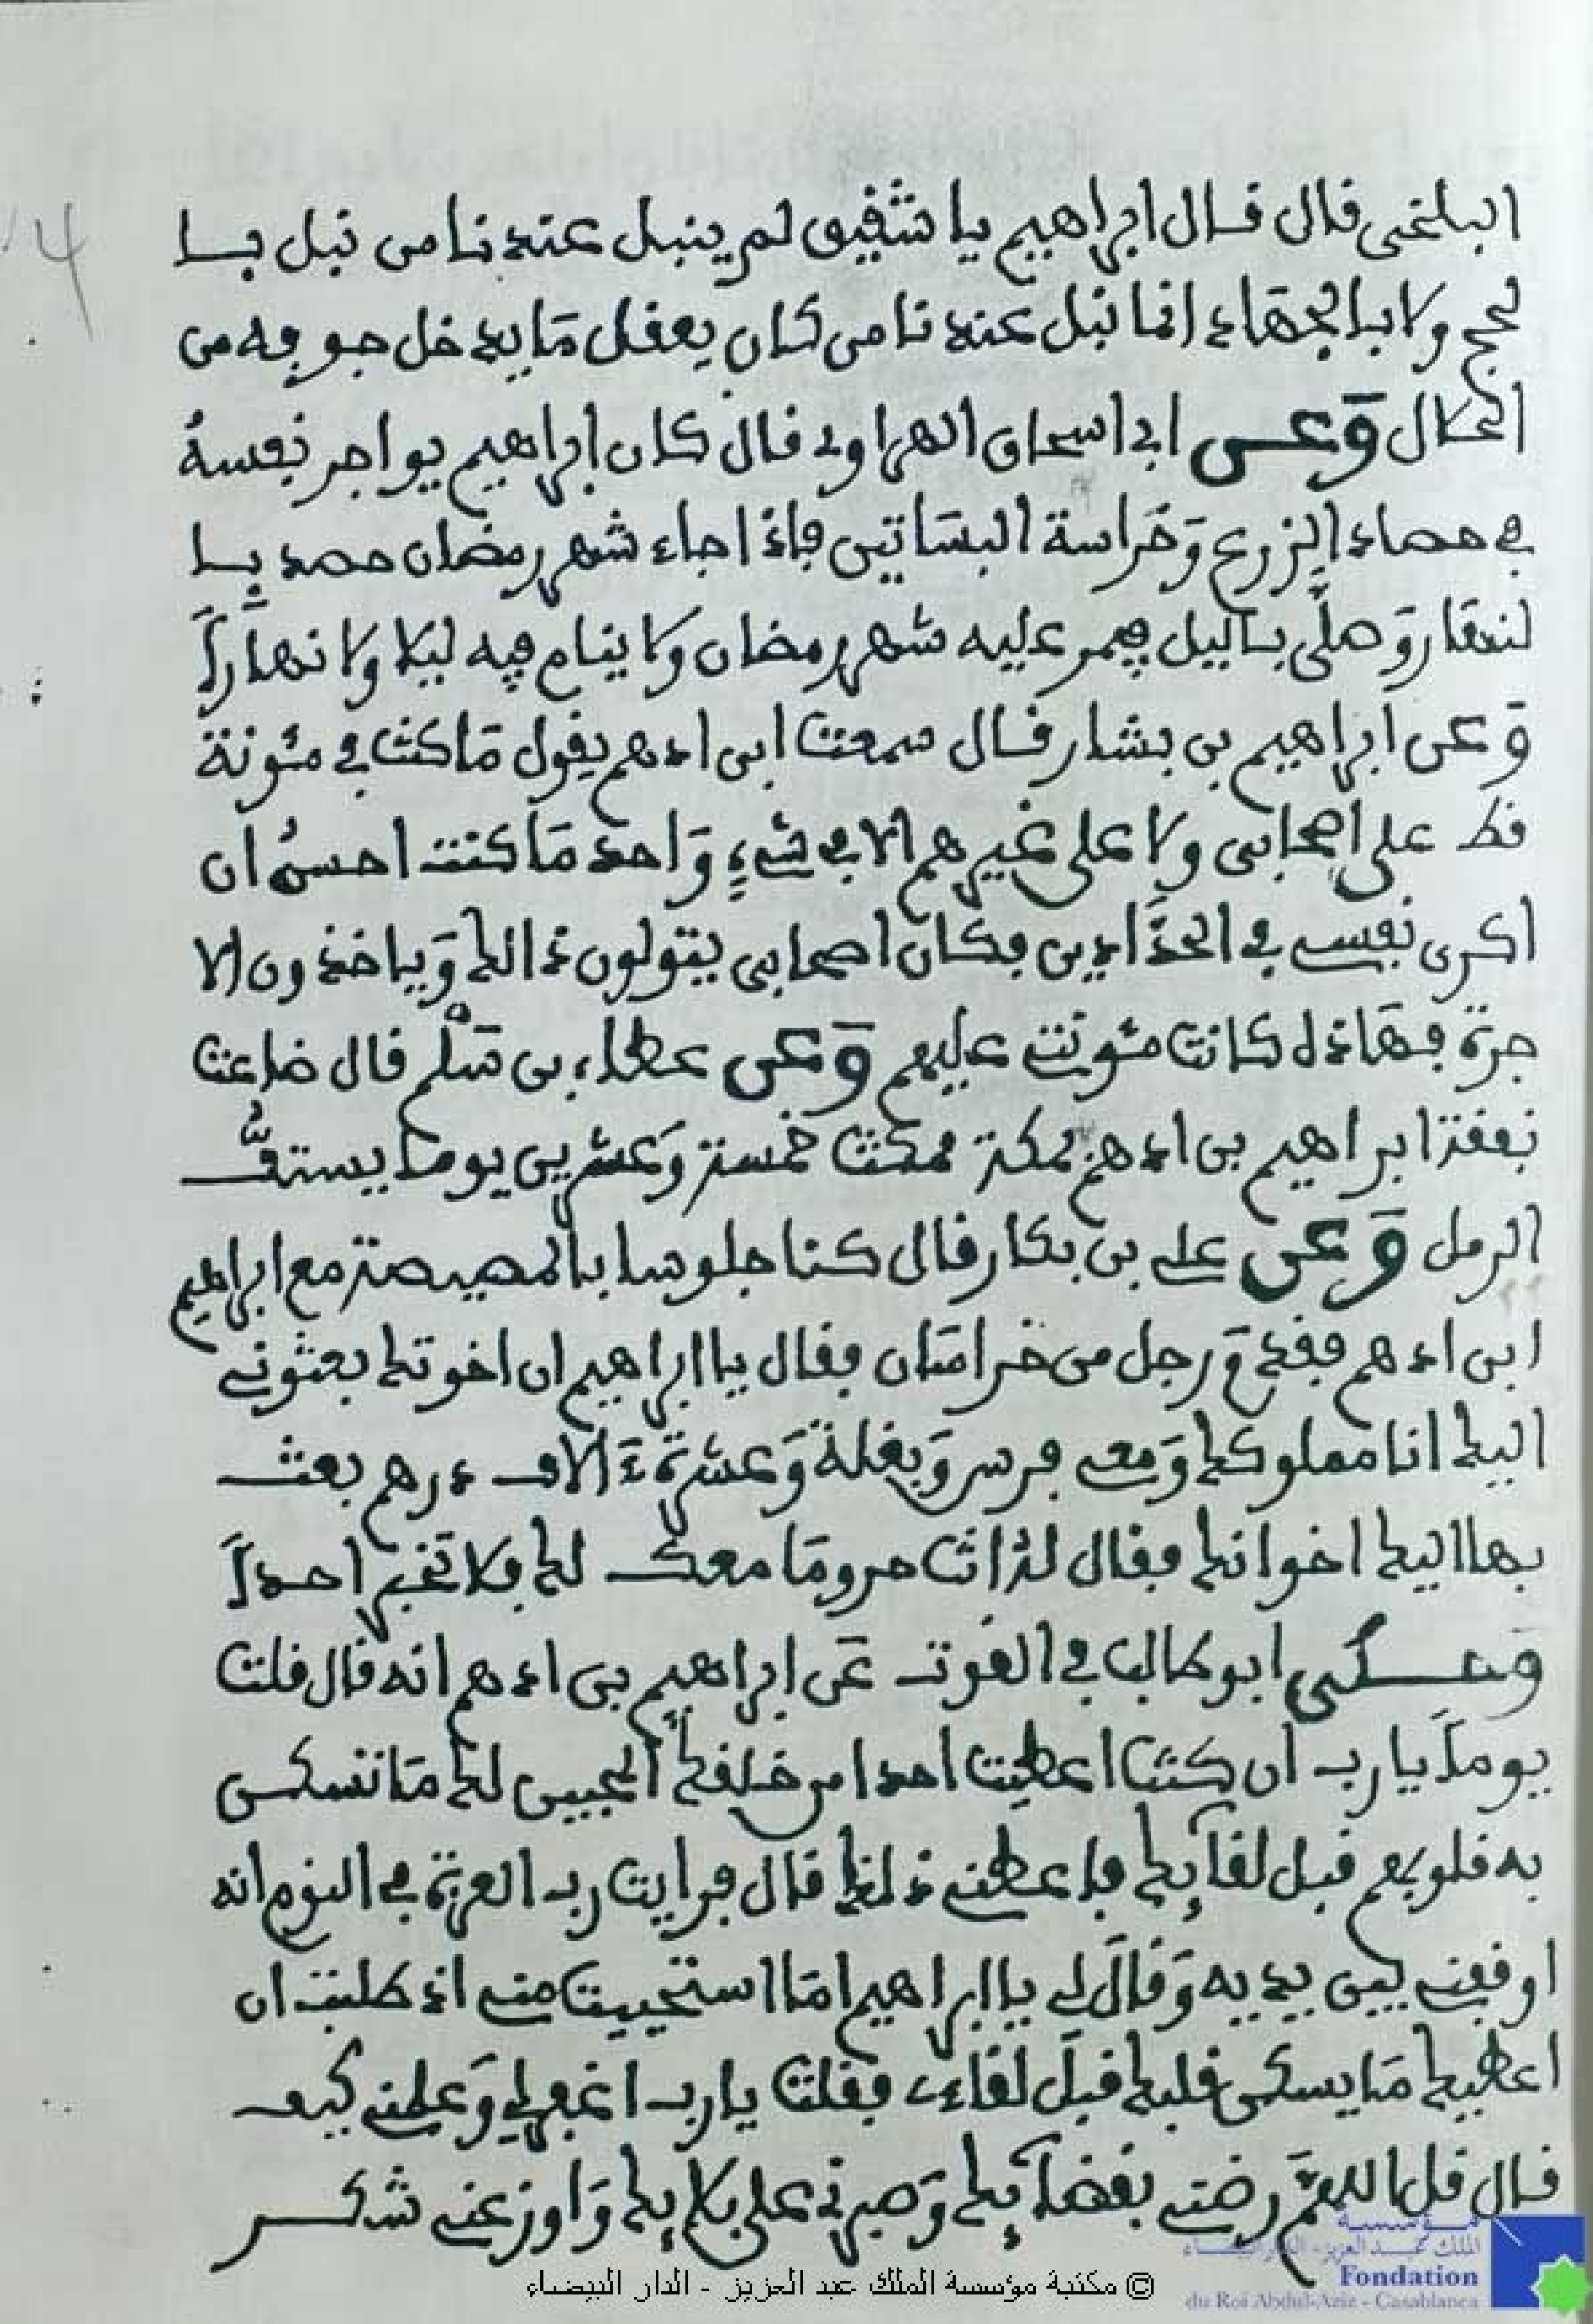 البلخي قال قال ابراهيم يا شقيق لم ينبل عندنا من نبل با
لحج ولا بالجهاد انما نبل عندنا من كان يعقل ما يدخل جوفه من
الحلال وعن ابي اسحاق الهراوي قال كان ابراهيم يواجر نفسه
في حصاد الزرع وحراسة البساتين فاذا جاء شهر رمضان حصد با
لنهار وصلى باليل فيمر عليه شهر رمضان ولا ينام فيه ليلا ولا نهارا
وعن ابراهيم بن بشار قال سمعت ابن ادهم يقول ما كنت في مئونة
قط على اصحابي ولا على غيرهم الا في شيء واحد ما كنت احسن ان
اكري نفسي في الحدادين فكان اصحابي يتولون ذالك وياخذون الا
جرة فهاذه كانت مئونتي عليهم وعن عطاء بن مسلم قال ضاعت
نفقة ابراهيم بن ادهم بمكة فمكث خمسة وعشرين يوما يستف
الرمل وعن علي بن بكار قال كنا جلوسا بالمصيصة مع ابراهيم
ابن ادهم فقدم رجل من خراسان فقال يا ابراهيم ان اخوتك بعثوني
اليك انا مملوكك ومعي فرس وبغلة وعشرة ءالاف درهم بعث
بها اليك اخوانك فقال له انت حر وما معك لك فلا تخبر احدا
وحكى ابو طالب في القوت عن ابراهيم بن ادهم انه قال قلت
يوما يا رب ان كنت اعطيت احدا من خلقك المحبين لك ما تسكن
به قلوبهم قبل لقائك فاعطني ذلك قال فرايت رب العزة في النوم انه
اوقفني بين يديه وقال لي يا ابراهيم اما استحييت مني اذ طلبت ان
اعطيك ما يسكن قلبك قبل لقاءي فقلت يا رب اغفر لي وعلمني كيف
قال قل اللهم رضني بقضائك وصبرني على بلائك واوزعني شكر
© مكتبة مؤسسة الملك عبد العزيز - الدار البيضاء
مؤسسة
الملك عبد العزيز - الدار البيضاء
Fondation
du Roi Abdul-Aziz - Casablanca